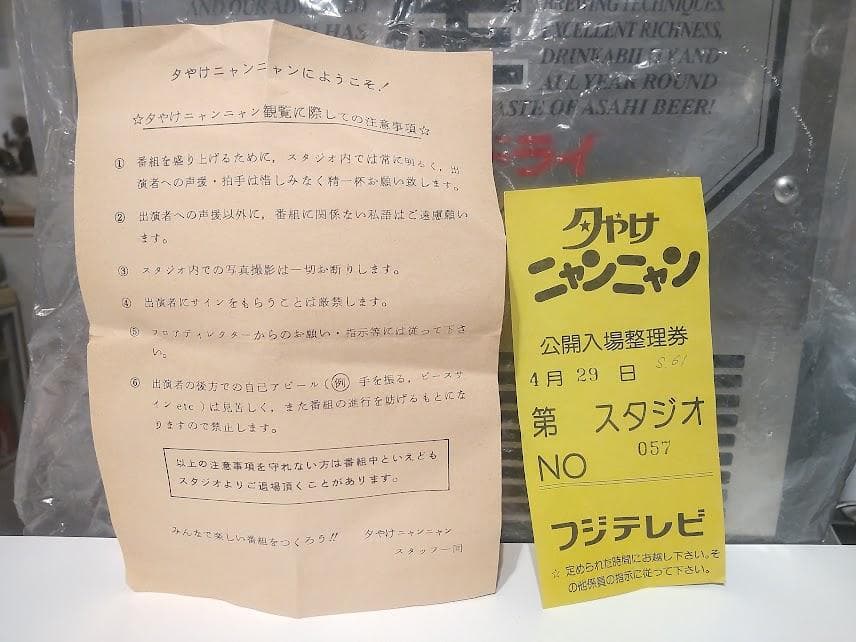 AND OUR ADVANCED
HAS
BREWING TECHNIQUES,
EXCELLENT RICHNESS,
DRINKABILITY AND
ALL YEAR ROUND
TASTE OF ASAHI BEER!
ドライ
夕やけニャンニャンにようこそ!
☆夕やけニャンニャン観覧に際しての注意事項☆
① 番組を盛り上げるために,スタジオ内では常に明るく,出
演者への声援・拍手は惜しみなく精一杯お願い致します。
② 出演者への声援以外に,番組に関係ない私語はご遠慮願い
ます。
③ スタジオ内での写真撮影は一切お断りします。
④ 出演者にサインをもらうことは厳禁します。
⑤ フロアディレクターからのお願い・指示等には従って下さ
い。
⑥ 出演者の後方での自己アピール(例 手を振る,ピースサ
インetc)は見苦しく,また番組の進行を妨げるもとにな
りますので禁止します。
以上の注意事項を守れない方は番組中といえども
スタジオよりご退場頂くことがあります。
みんなで楽しい番組をつくろう!! 夕やけニャンニャン
スタッフ一同
夕やけ
ニャンニャン
公開入場整理券
S.61
4月 29 日
第 スタジオ
NO 057
フジテレビ
☆ 定められた時間にお越し下さい。そ
の他係員の指示に従って下さい。